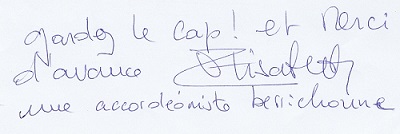 gardez le cap! et Merci
d'avance Elisabeth
une accordéoniste berrichonne